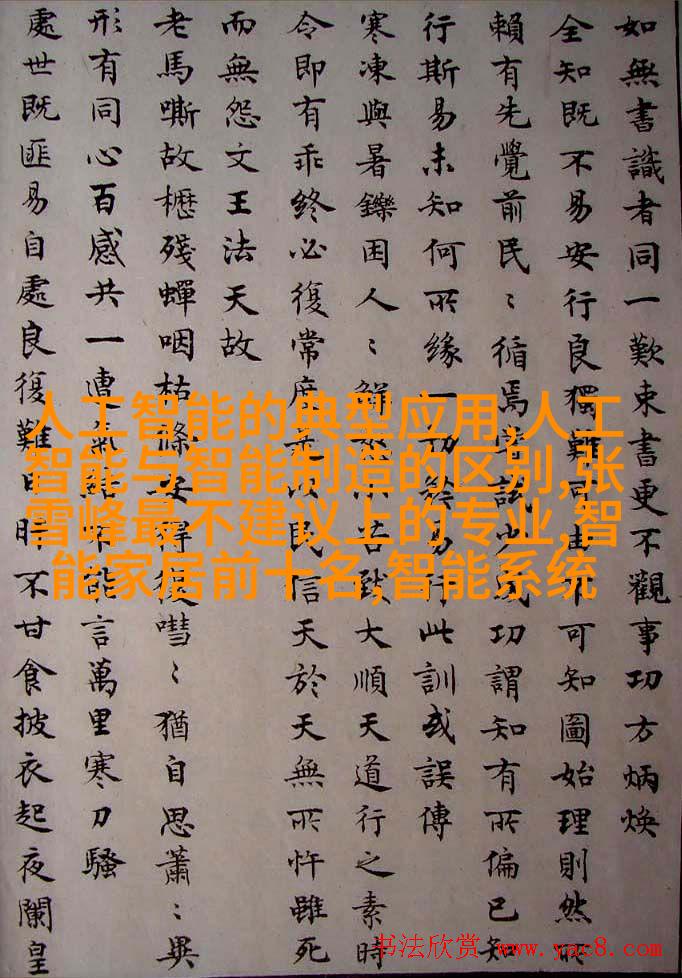 如無書識者同一歎束書更不觀事功方炳煥
全知既不易安行良獨難可由不可知圖始理則然所
賴有先覺前民〻循焉試少成功謂知有所偏已知
行斯易未知何所緣一切勿行此訓或誤傳
寒凍與暑鑠困人〻鮮怨小苦致大順天道行之素時
令即有乖終必復常度是以民信天於天無所忤雖死
而無怨文王法天故
老馬嘶故櫪殘蟬咽枯條安得復嘒〻猶自思蕭〻異
形有同心百感共一遭氣結不能言萬里寒刀騷
處世既匪易自處良復難日旰不甘食披衣起夜闌皇
人工智能的典型应用,人工
智能与智能制造的区别,张
雪峰最不建议上的专业,智
能家居前十名,智能系统
书法欣赏 www.yac8.com